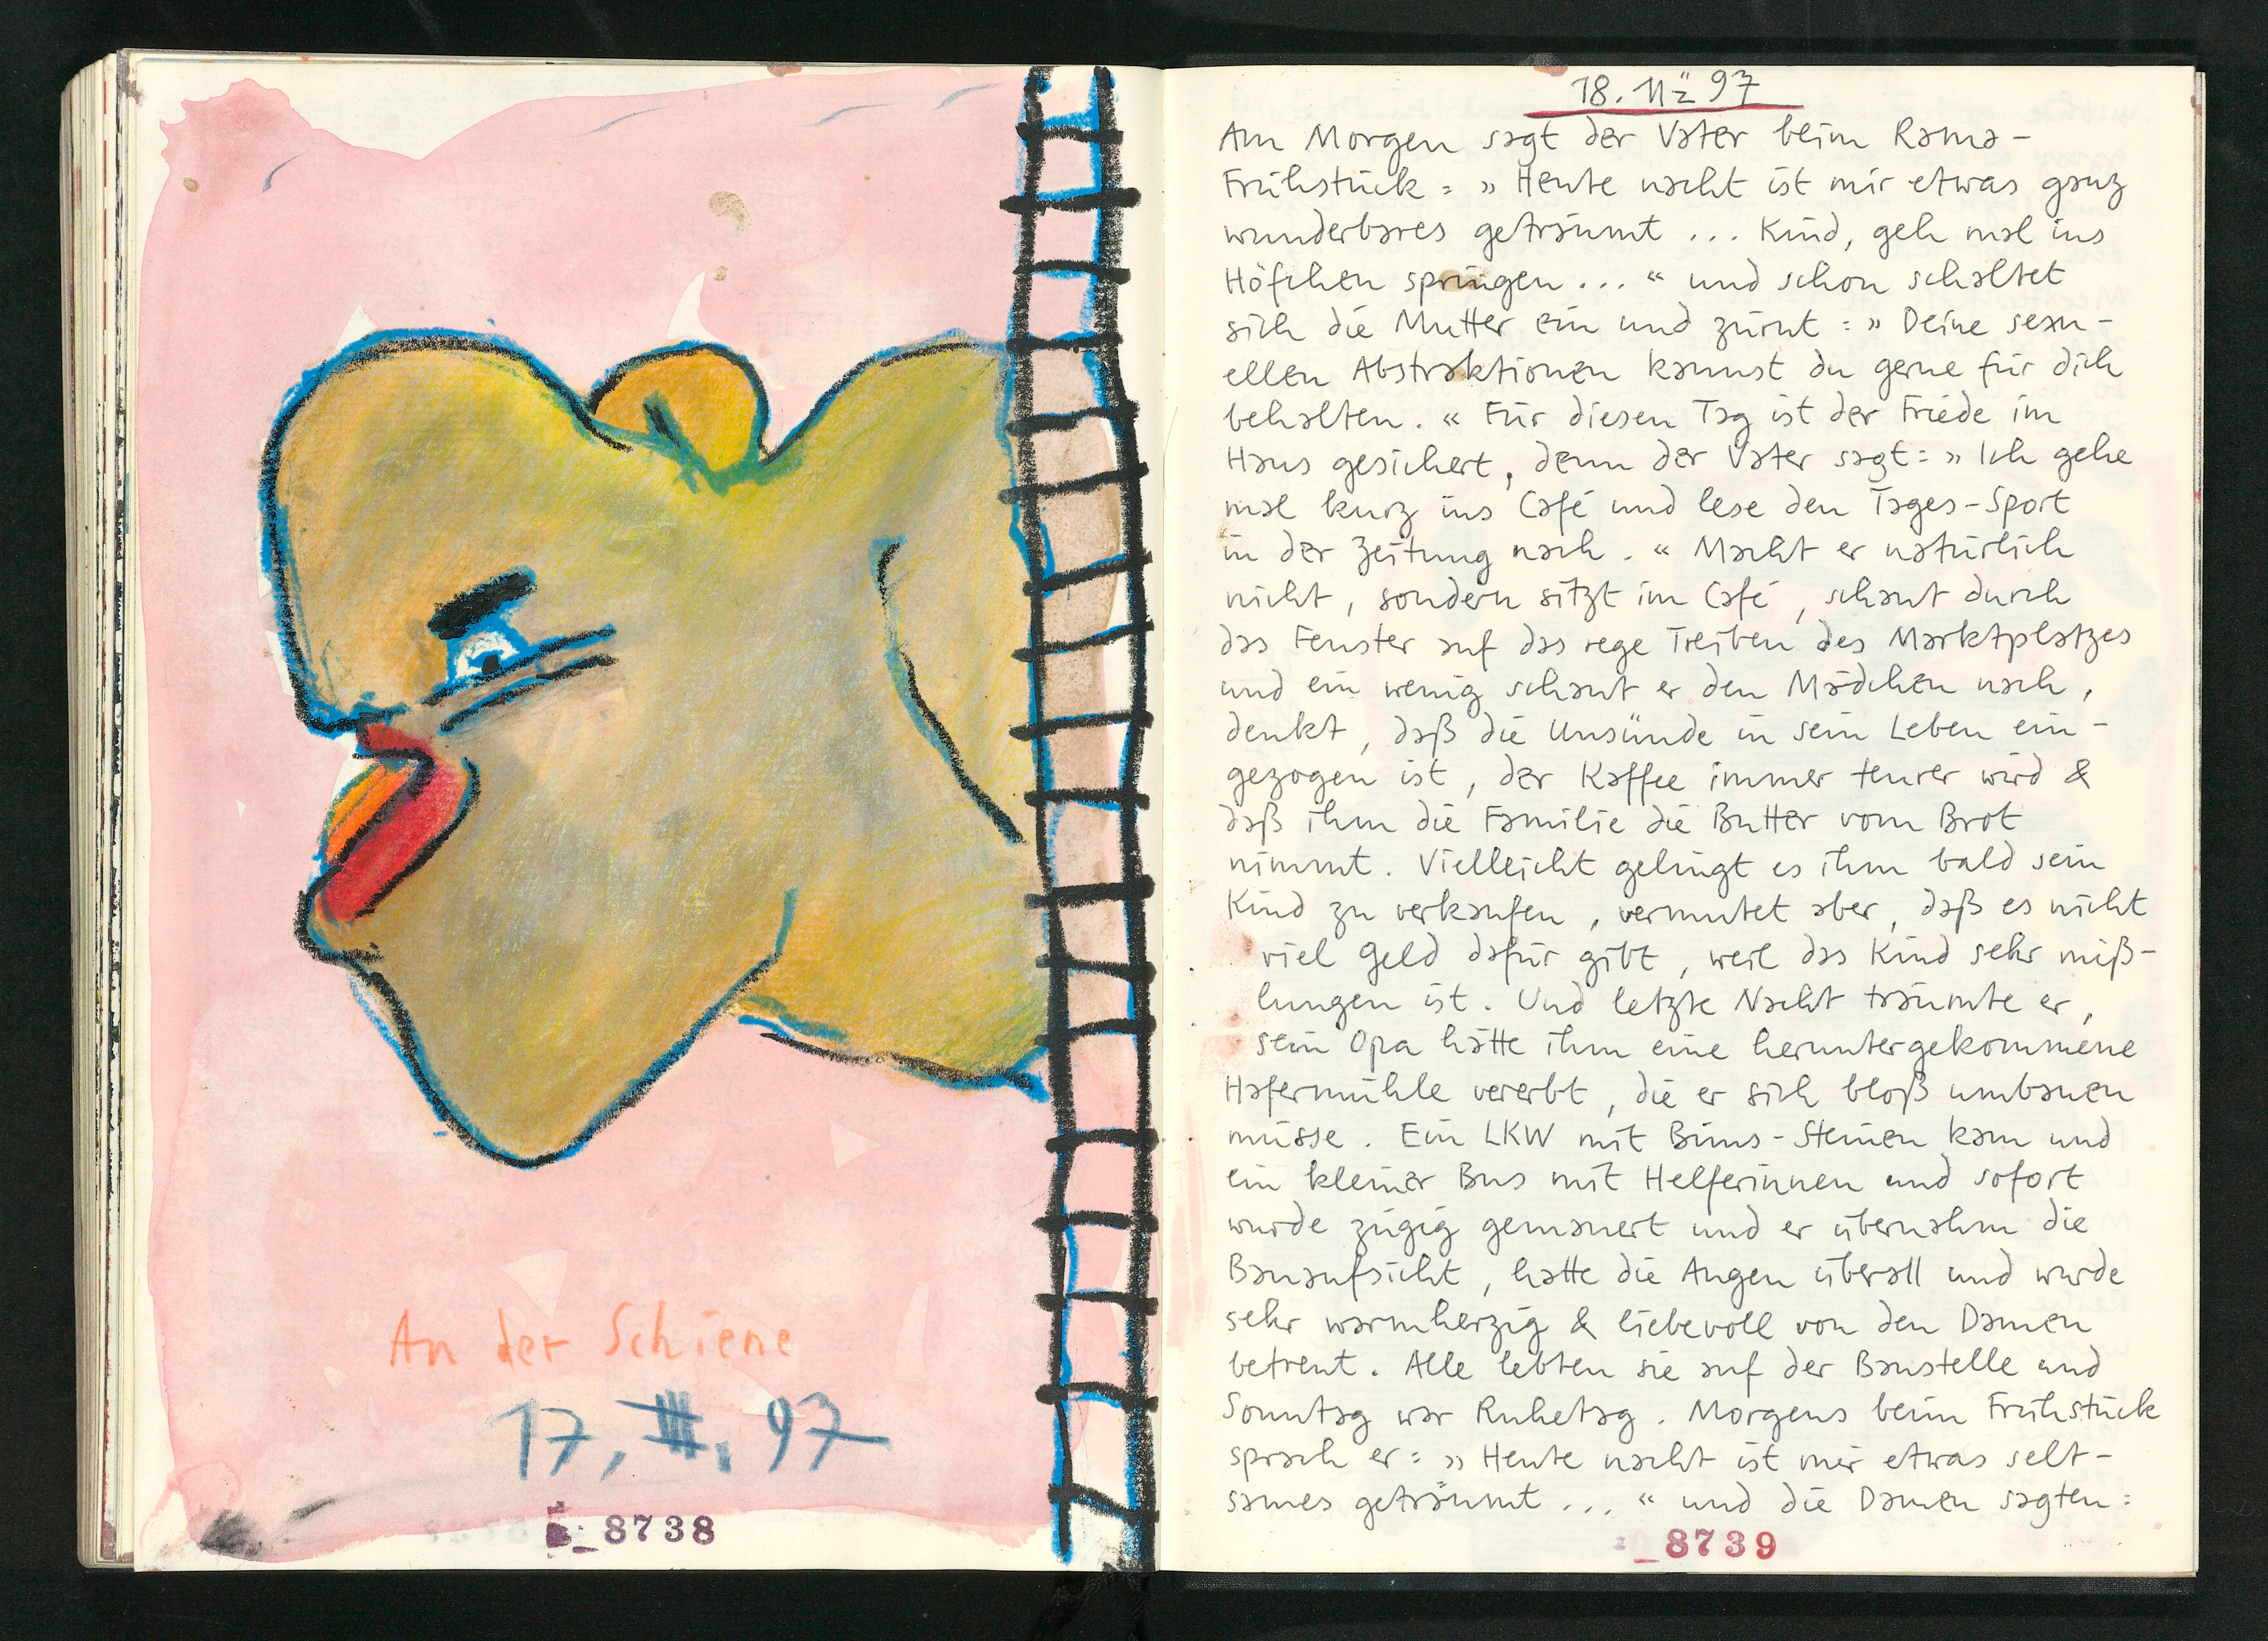 An der Schiene
17, III. 97
8738
18. 11 97
Am Morgen sagt der Vater beim Rama-
Frühstück: »Heute nacht ist mir etwas ganz
wunderbares geträumt ... Kind, geh mal ins
Höfchen springen ...« und schon schaltet
sich die Mutter ein und zürnt: »Deine sexu-
ellen Abstraktionen kannst du gerne für dich
behalten.« Für diesen Tag ist der Friede im
Haus gesichert, denn der Vater sagt: »Ich gehe
mal kurz ins Café und lese den Tages-Sport
in der Zeitung nach.« Macht er natürlich
nicht, sondern sitzt im Café, schaut durch
das Fenster auf das rege Treiben des Marktplatzes
und ein wenig schaut er den Mädchen nach,
denkt, daß die Unsünde in sein Leben ein-
gezogen ist, der Kaffee immer teurer wird &
daß ihm die Familie die Butter vom Brot
nimmt. Vielleicht gelingt es ihm bald sein
Kind zu verkaufen, vermutet aber, daß es nicht
viel Geld dafür gibt, weil das Kind sehr miß-
lungen ist. Und letzte Nacht träumte er,
sein Opa hätte ihm eine heruntergekommene
Hafermühle vererbt, die er sich bloß umbauen
müsse. Ein LKW mit Bims-Steinen kam und
ein kleiner Bus mit Helferinnen und sofort
wurde zügig gemauert und er übernahm die
Bauaufsicht, hatte die Augen überall und wurde
sehr warmherzig & liebevoll von den Damen
betreut. Alle lebten sie auf der Baustelle und
Sonntag war Ruhetag. Morgens beim Frühstück
sprach er: »Heute nacht ist mir etwas selt-
sames geträumt ...« und die Damen sagten:
8739